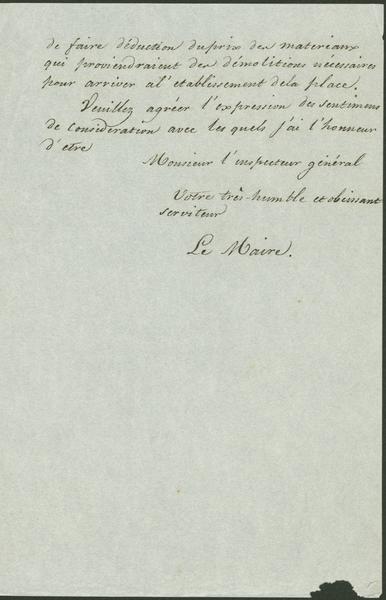 de faire déduction du prix des materiaux
qui proviendraient des démolitions nécessaires
pour arriver a l'etablissement de la place.
Veuillez agréer l'expression des sentimens
de Consideration avec les quels j'ai l'honneur
d'etre
Monsieur l'inspecteur général
Votre très-humble et obeissant
serviteur
Le Maire.